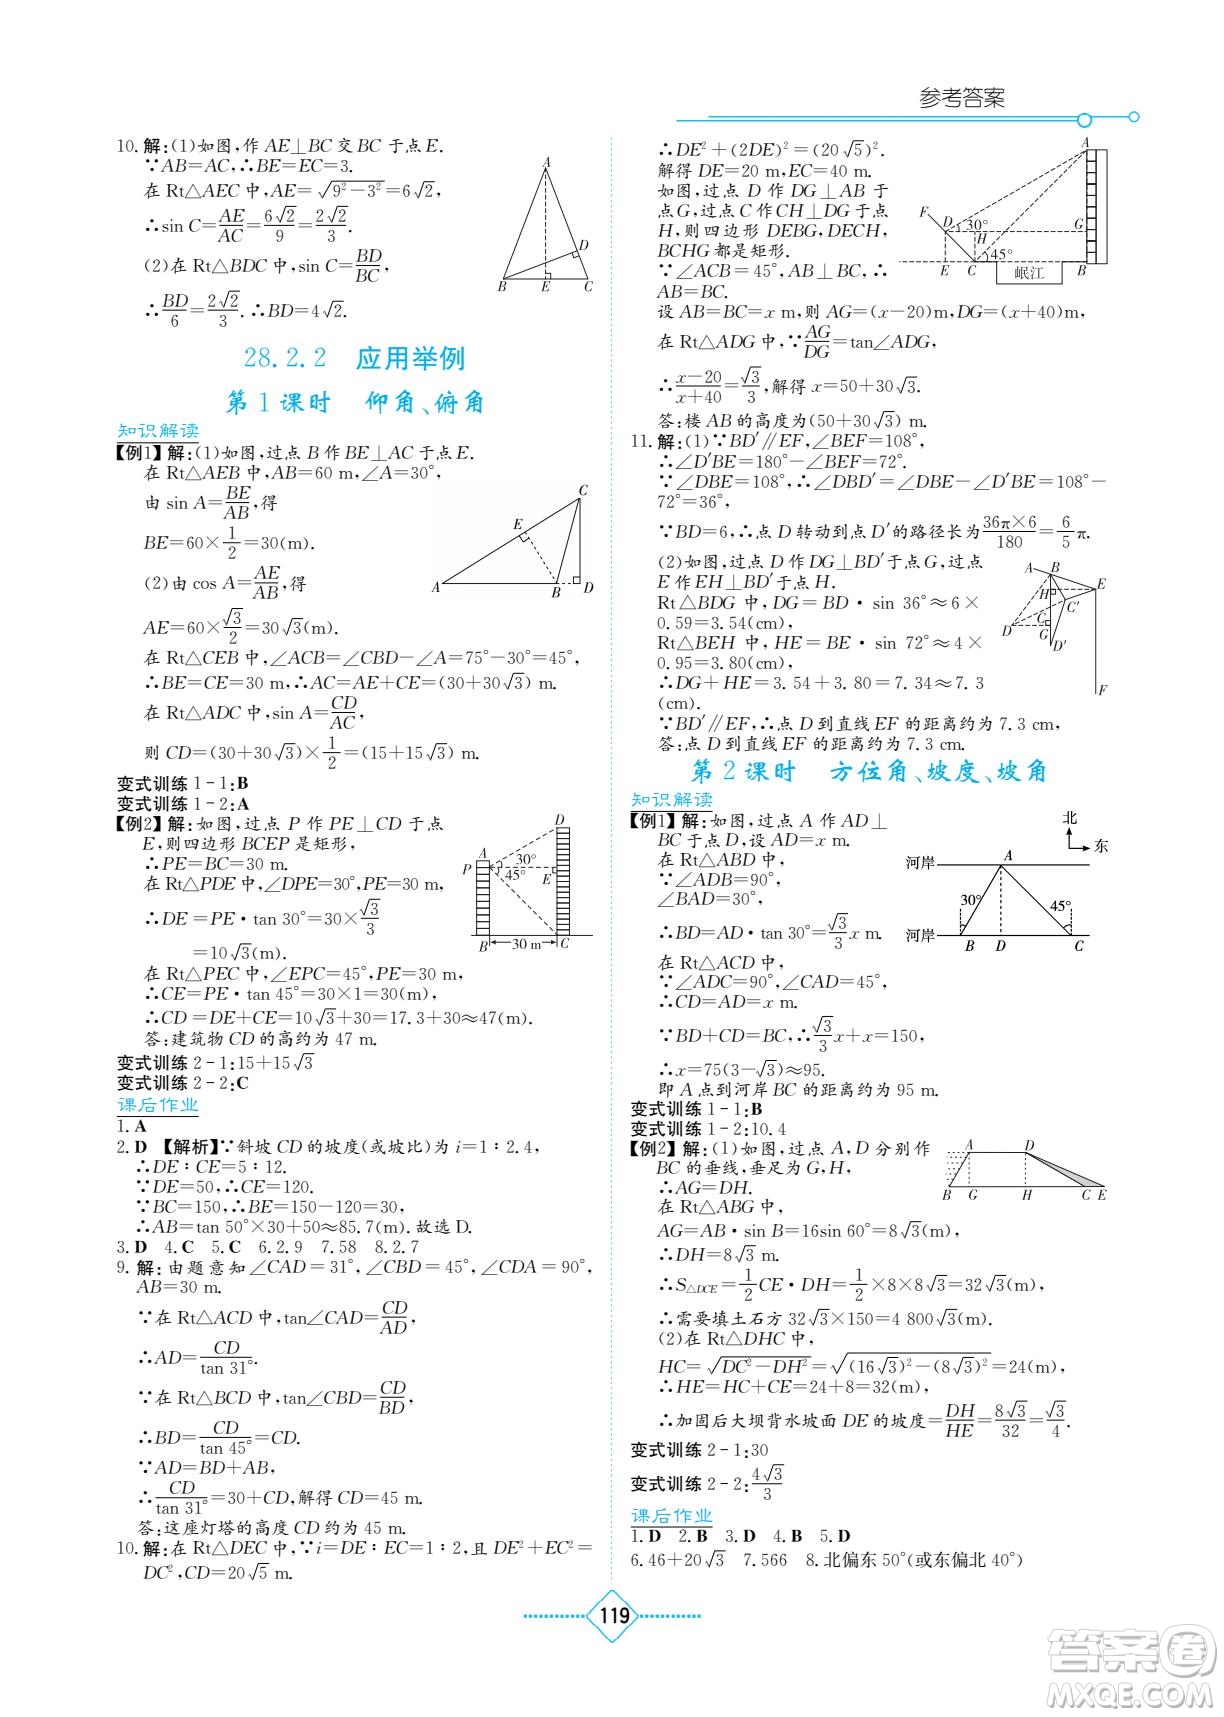 参考答案
10. 解:(1)如图,作 AE⊥BC 交 BC 于点 E.
∵AB=AC,∴BE=EC=3.
在 Rt△AEC 中,AE=√(9²-3²)=6√2,
∴sin C=AE/AC=6√2/9=2√2/3.
(2)在 Rt△BDC 中,sin C=BD/BC,
∴BD/6=2√2/3.∴BD=4√2.
A
D
B E C
28.2.2 应用举例
第 1 课时 仰角、俯角
知识解读
【例1】解:(1)如图,过点 B 作 BE⊥AC 于点 E.
在 Rt△AEB 中,AB=60 m,∠A=30°,
由 sin A=BE/AB,得
BE=60×1/2=30(m).
(2)由 cos A=AE/AB,得
AE=60×√3/2=30√3(m).
C
E
A B D
在 Rt△CEB 中,∠ACB=∠CBD-∠A=75°-30°=45°,
∴BE=CE=30 m,∴AC=AE+CE=(30+30√3) m.
在 Rt△ADC 中,sin A=CD/AC,
则 CD=(30+30√3)×1/2=(15+15√3) m.
变式训练 1-1:B
变式训练 1-2:A
【例2】解:如图,过点 P 作 PE⊥CD 于点
E,则四边形 BCEP 是矩形,
∴PE=BC=30 m.
在 Rt△PDE 中,∠DPE=30°,PE=30 m,
∴DE=PE·tan 30°=30×√3/3
=10√3(m).
D
A
P 30°
45° E
B 30 m C
在 Rt△PEC 中,∠EPC=45°,PE=30 m,
∴CE=PE·tan 45°=30×1=30(m).
∴CD=DE+CE=10√3+30=17.3+30≈47(m).
答:建筑物 CD 的高约为 47 m.
变式训练 2-1:15+15√3
变式训练 2-2:C
课后作业
1. A
2. D 【解析】∵斜坡 CD 的坡度(或坡比)为 i=1∶2.4,
∴DE∶CE=5∶12.
∵DE=50,∴CE=120.
∵BC=150,∴BE=150-120=30,
∴AB=tan 50°×30+50≈85.7(m).故选 D.
3. D 4. C 5. C 6. 2.9 7. 58 8. 2.7
9. 解:由题意知∠CAD=31°,∠CBD=45°,∠CDA=90°,
AB=30 m.
∵在 Rt△ACD 中,tan∠CAD=CD/AD,
∴AD=CD/tan 31°.
∵在 Rt△BCD 中,tan∠CBD=CD/BD,
∴BD=CD/tan 45°=CD.
∵AD=BD+AB,
∴CD/tan 31°=30+CD,解得 CD=45 m.
答:这座灯塔的高度 CD 约为 45 m.
10. 解:在 Rt△DEC 中,∵i=DE∶EC=1∶2,且 DE²+EC²=
DC²,CD=20√5 m.
∴DE²+(2DE)²=(20√5)².
解得 DE=20 m,EC=40 m.
如图,过点 D 作 DG⊥AB 于
点G,过点 C 作 CH⊥DG 于点
H,则四边形 DEBG,DECH,
BCHG 都是矩形.
∵∠ACB=45°,AB⊥BC,∴
AB=BC.
A
F D 30° G
H
45°
E C 岷江 B
设 AB=BC=x m,则 AG=(x-20)m,DG=(x+40)m,
在 Rt△ADG 中,∵AG/DG=tan∠ADG,
∴x-20/x+40=√3/3,解得 x=50+30√3.
答:楼 AB 的高度为(50+30√3) m.
11. 解:(1)∵BD′∥EF,∠BEF=108°,
∴∠D′BE=180°-∠BEF=72°.
∵∠DBE=108°,∴∠DBD′=∠DBE-∠D′BE=108°-
72°=36°,
∵BD=6,∴点 D 转动到点 D′的路径长为36π×6/180=6/5π.
(2)如图,过点 D 作 DG⊥BD′于点G,过点
E 作 EH⊥BD′于点 H.
Rt△BDG 中,DG=BD·sin 36°≈6×
0.59=3.54(cm),
Rt△BEH 中,HE=BE·sin 72°≈4×
0.95=3.80(cm),
∴DG+HE=3.54+3.80=7.34≈7.3
(cm).
A B
H E
C′
C
D G
D′
F
∵BD′∥EF,∴点 D 到直线 EF 的距离约为 7.3 cm,
答:点 D 到直线 EF 的距离约为 7.3 cm.
第 2 课时 方位角、坡度、坡角
知识解读
【例1】解:如图,过点 A 作 AD⊥
BC 于点 D,设 AD=x m.
在 Rt△ABD 中,
∵∠ADB=90°,
∠BAD=30°,
∴BD=AD·tan 30°=√3/3x m.
北
东
河岸 A
30° 45°
河岸 B D C
在 Rt△ACD 中,
∵∠ADC=90°,∠CAD=45°,
∴CD=AD=x m.
∵BD+CD=BC,∴√3/3x+x=150,
∴x=75(3-√3)≈95.
即 A 点到河岸 BC 的距离约为 95 m.
变式训练 1-1:B
变式训练 1-2:10.4
【例2】解:(1)如图,过点 A,D 分别作
BC 的垂线,垂足为 G,H,
∴AG=DH.
在 Rt△ABG 中,
A D
B G H C E
AG=AB·sin B=16sin 60°=8√3(m),
∴DH=8√3 m.
∴S△DCE=1/2CE·DH=1/2×8×8√3=32√3(m).
∴需要填土石方 32√3×150=4 800√3(m).
(2)在 Rt△DHC 中,
HC=√(DC²-DH²)=√((16√3)²-(8√3)²)=24(m),
∴HE=HC+CE=24+8=32(m),
∴加固后大坝背水坡面 DE 的坡度=DH/HE=8√3/32=√3/4.
变式训练 2-1:30
变式训练 2-2:4√3/3
课后作业
1. D 2. B 3. D 4. B 5. D
6. 46+20√3 7. 566 8. 北偏东 50°(或东偏北 40°)
119
答案卷
MXQE.COM